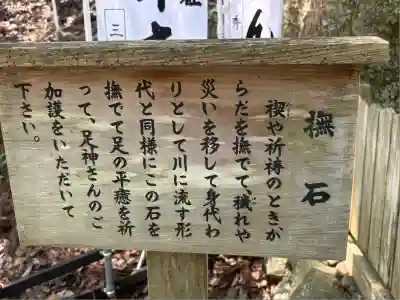 撫石
禊や祈祷のときか
らだを撫でて、穢れや
災いを移して身代わ
りとして川に流す形
代と同様にこの石を
撫でて足の平癒を祈
って、足神さんのご
加護をいただいて
下さい。
三